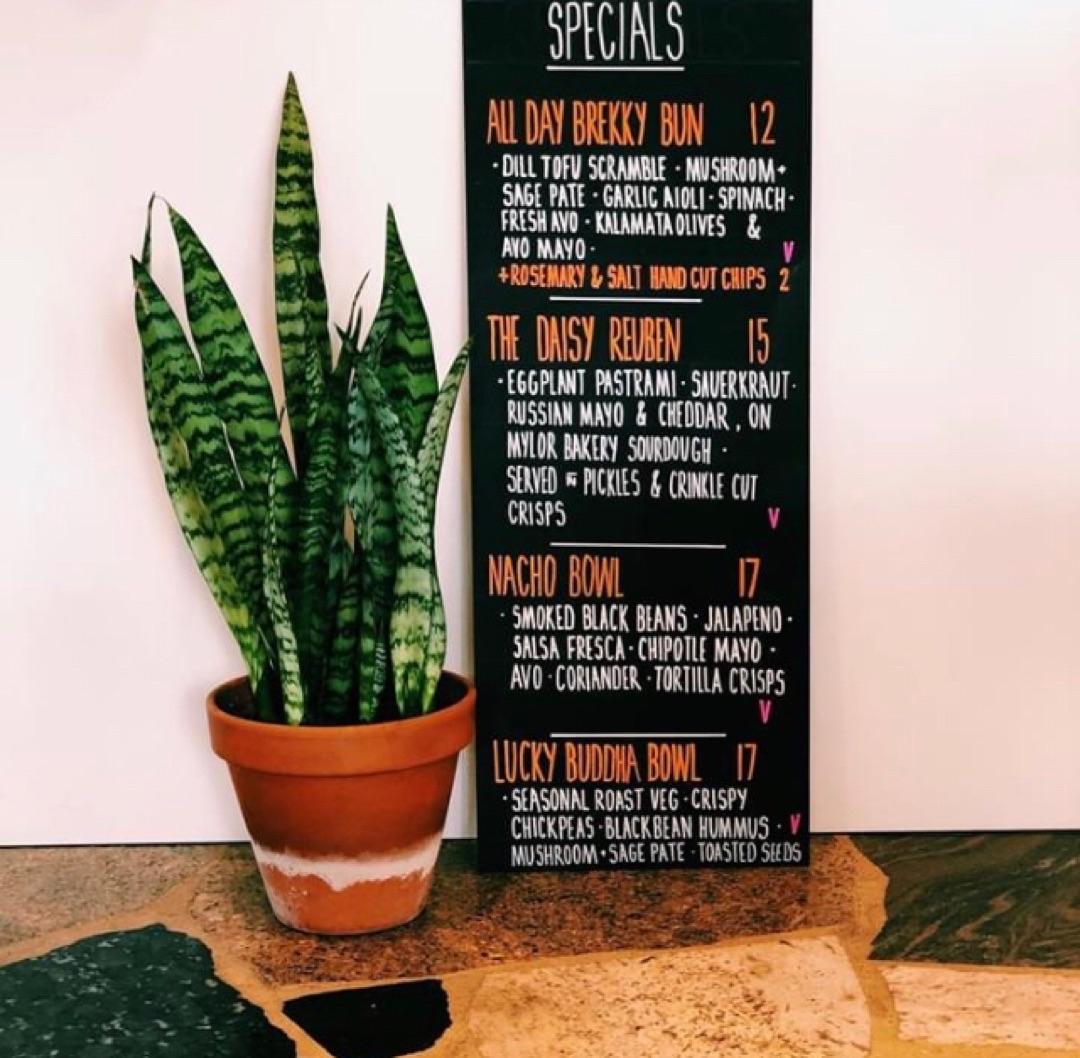 SPECIALS
ALL DAY BREKKY BUN 12
· DILL TOFU SCRAMBLE · MUSHROOM +
SAGE PATE · GARLIC AIOLI · SPINACH ·
FRESH AVO · KALAMATA OLIVES &
AVO MAYO · V
+ ROSEMARY & SALT HAND CUT CHIPS 2
THE DAISY REUBEN 15
· EGGPLANT PASTRAMI · SAUERKRAUT ·
RUSSIAN MAYO & CHEDDAR, ON
MYLOR BAKERY SOURDOUGH ·
SERVED PICKLES & CRINKLE CUT
CRISPS V
NACHO BOWL 17
· SMOKED BLACK BEANS · JALAPENO ·
SALSA FRESCA · CHIPOTLE MAYO ·
AVO · CORIANDER · TORTILLA CRISPS
V
LUCKY BUDDHA BOWL 17
· SEASONAL ROAST VEG · CRISPY
CHICKPEAS · BLACKBEAN HUMMUS · V
MUSHROOM + SAGE PATE · TOASTED SEEDS